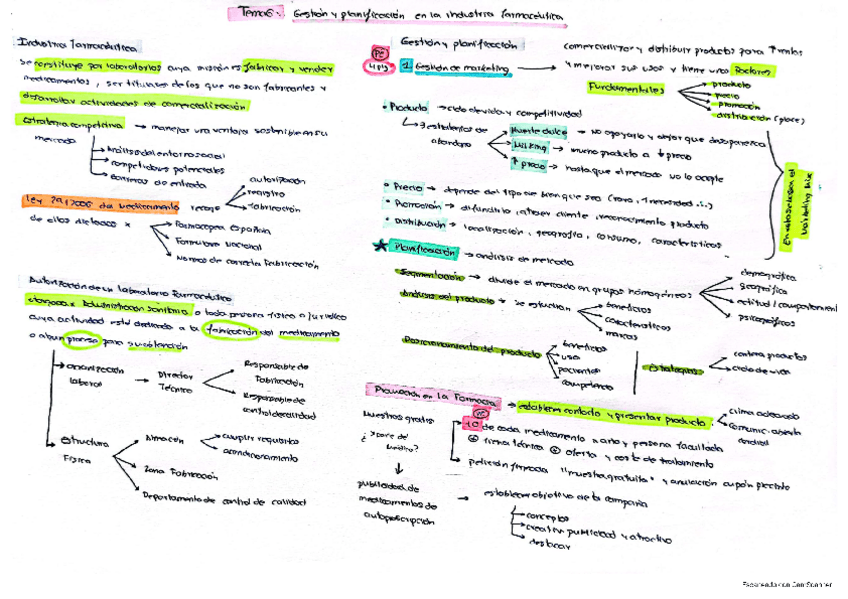 Tema 6: Gestión y planificación en la industria farmacéutica
Industria Farmacéutica
Se constituye por laboratorios cuya misión es fabricar y vender
medicamentos, ser titulares de los que no son fabricantes y
desarrollar actividades de comercialización
Estrategia competitiva → manejar una ventaja sostenible en su
mercado
Análisis del entorno social
competidores potenciales
barreras de entrada
Ley 29/2006 del medicamento recoge
autorización
registro
fabricación
de ellos
Farmacopea Española
Formulario Nacional
Normas de correcta fabricación
Autorización de un laboratorio farmacéutico
Administración sanitaria a toda persona física o jurídica
cuya actividad esté dedicada a la fabricación del medicamento
o algún proceso para su obtención
organización
laboral
Director
Técnico
Responsable de
fabricación
Responsable de
control de calidad
Estructura
Física
Almacén
cumplir requisitos
acondicionamiento
Zona Fabricación
Departamento de control de calidad
Gestión y planificación
PE
4 p's
1 Gestión de marketing
comercializar y distribuir productos para
y mejorar sus usos y tiene unos factores
Fundamentales
producto
precio
promoción
distribución (place)
Producto → ciclo de vida y competitividad
3 estrategias de
abandono
Muerte dulce → No apoyarlo y dejar que desaparezca
Milking → mucho producto a ↓ precio
↑ precio → hasta que el mercado no lo acepte
Precio → depende del tipo de bien que sea
Promoción → difundirlo, atraer cliente, reconocimiento producto
Distribución → localización, geografía, consumo, características
Marketing Mix
Planificación → análisis de mercado
Segmentación → divide el mercado en grupos homogéneos
demográfica
geográfica
actitud/comportamiento
psicográficos
Análisis del producto → se estudian
beneficios
características
marcas
Posicionamiento del producto
beneficios
uso
pacientes
competencia
Estrategias
cartera productos
ciclo de vida
Promoción en la Farmacia → establecer contacto y presentar producto
clima adecuado
comunic. abierta
cordial
Muestras gratis
PE
10 de cada medicamento x año y persona facultada
ficha técnica oferta y coste de tratamiento
petición firmada "muestra gratuita" y anulación cupón precinto
publicidad de
medicamentos de
autoprescripción
establecer objetivo de la compañía
conceptos
creativa publicidad y atractivo
destacar
Escaneado con CamScanner